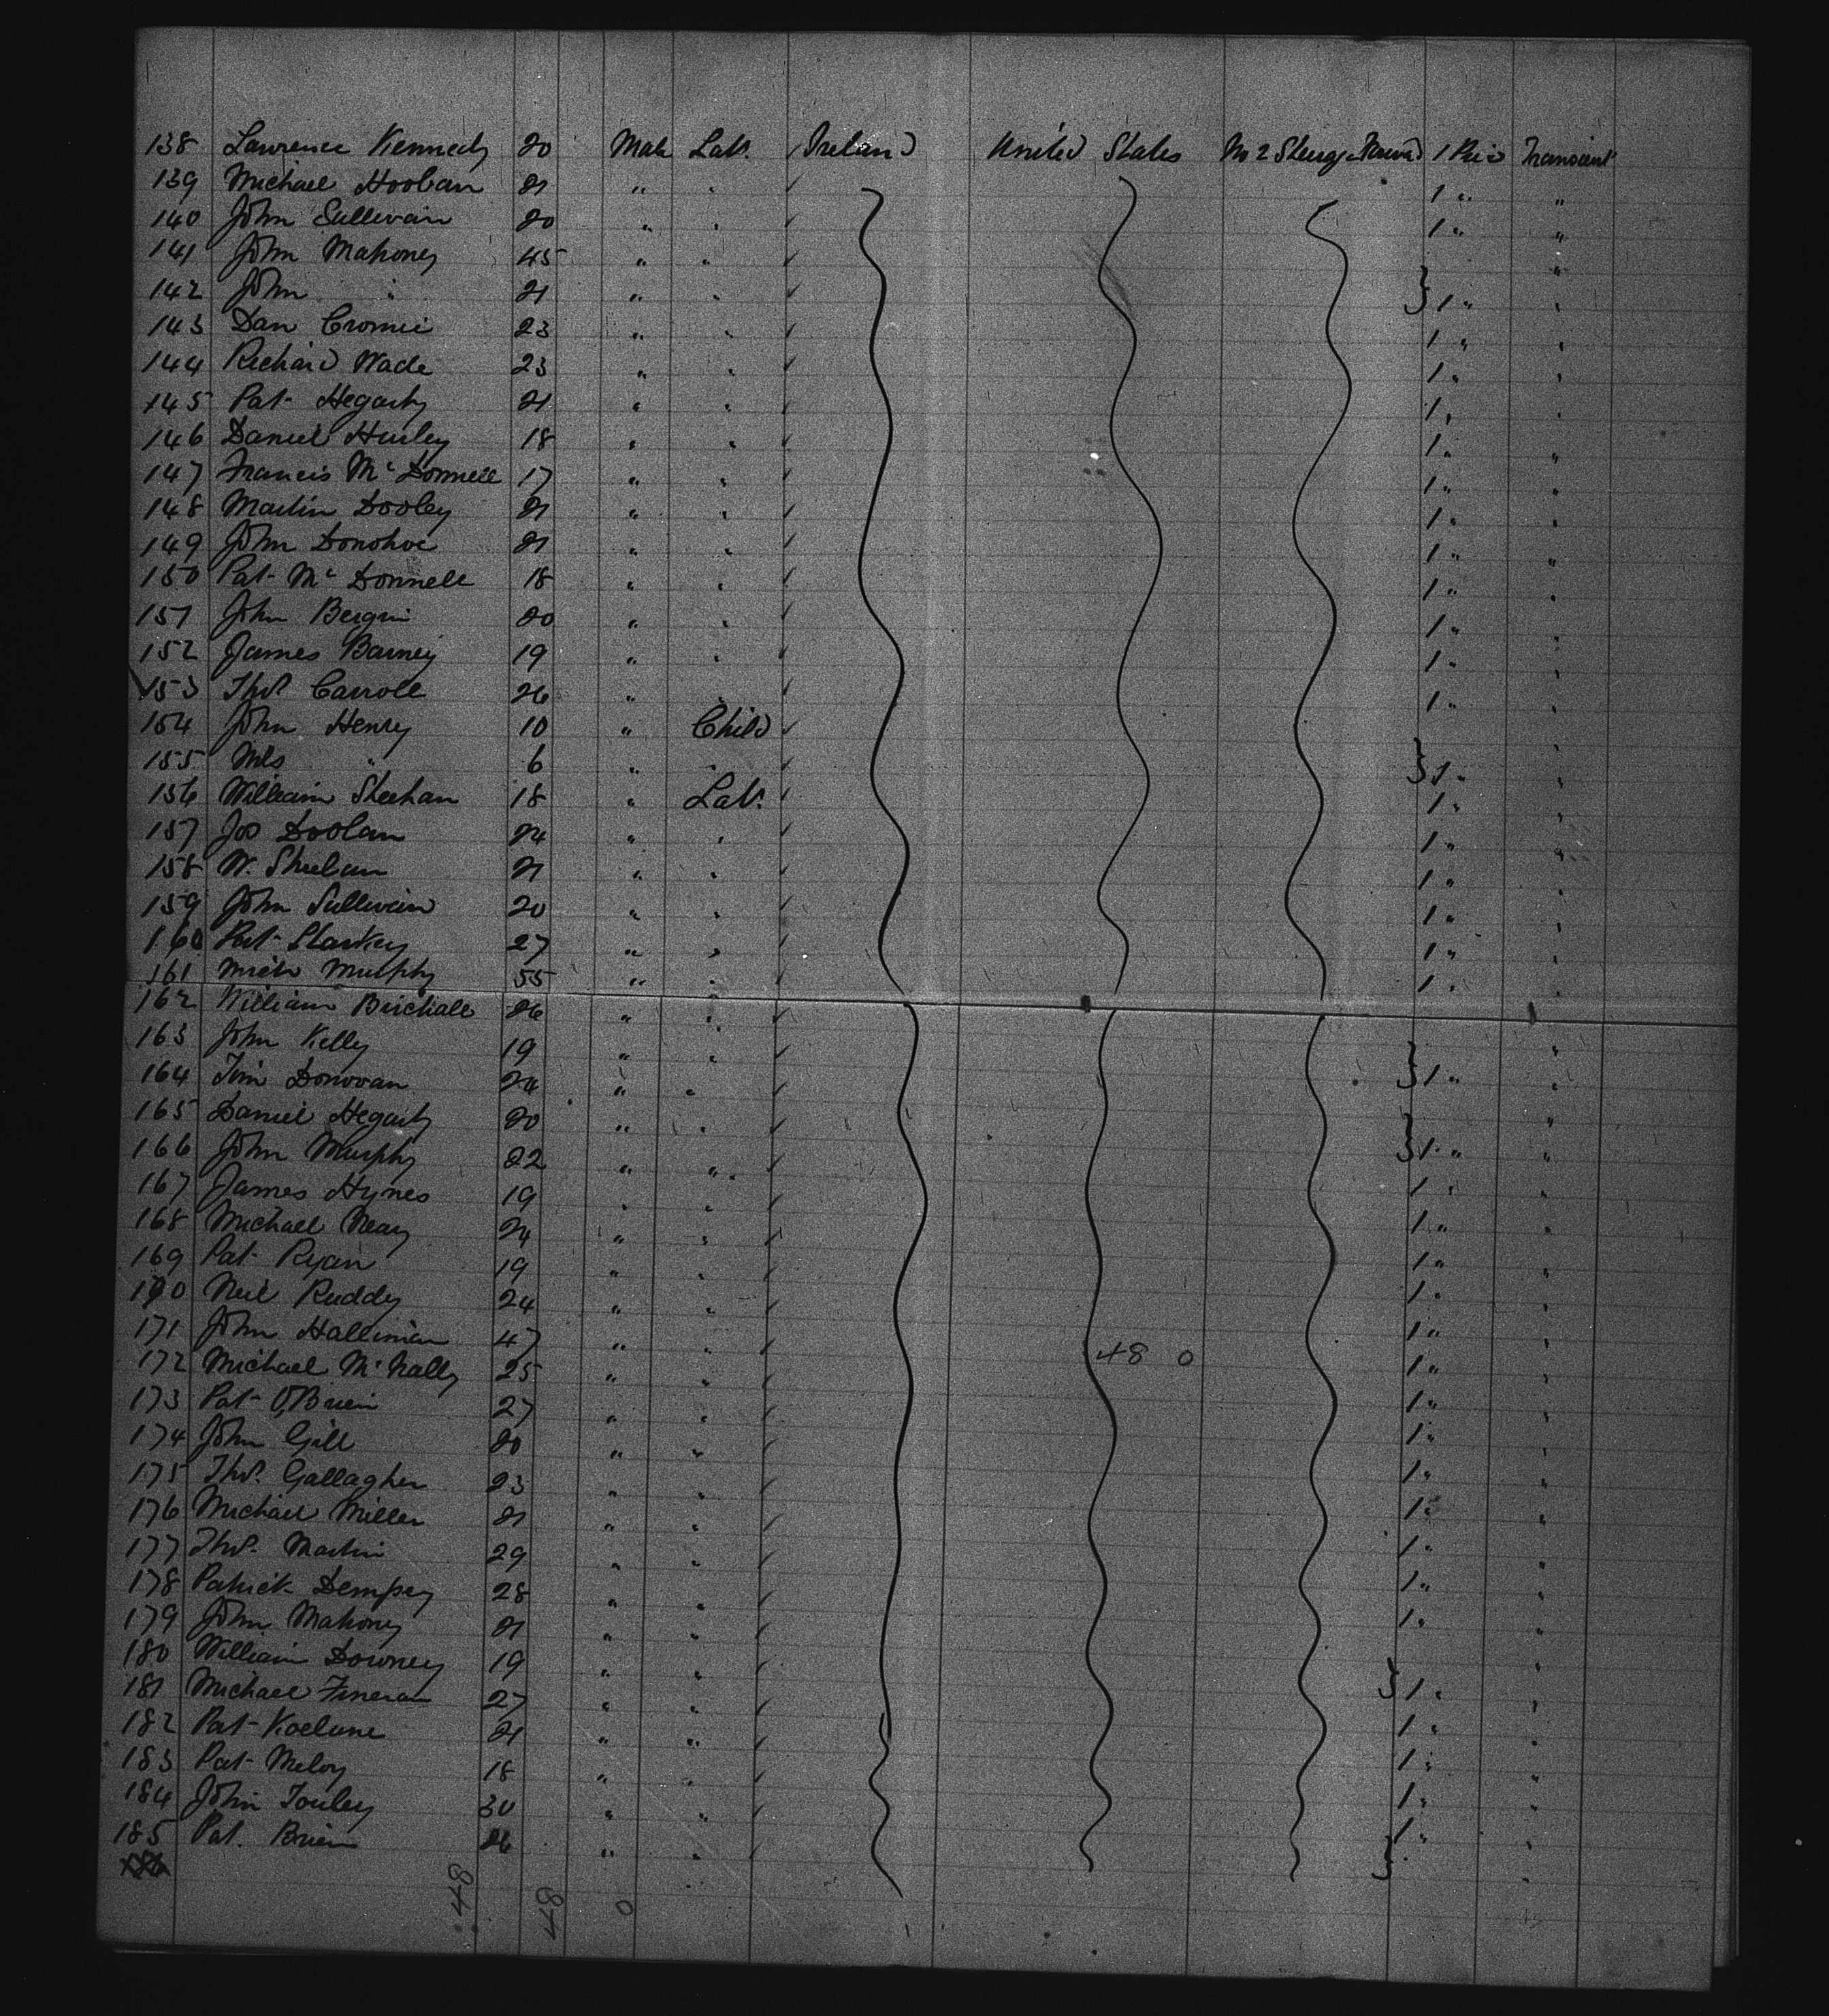 138 Lawrence Kennedy 20 Male Lab. Ireland United States No 2 1 Transient
139 Michael Hooban 21 " " 1 " "
140 John Sullivan 20 " " 1 " "
141 John Mahoney 45 " " "
142 John " 21 " " } 1 " "
143 Dan Cromie 23 " " 1 " "
144 Richard Wade 23 " " 1 " "
145 Pat Hegarty 21 " " 1 " "
146 Daniel Hurley 18 " " 1 " "
147 Francis McDonnell 17 " " 1 " "
148 Martin Dooley 21 " " 1 " "
149 John Donohoe 21 " " 1 " "
150 Pat McDonnell 18 " " 1 " "
151 John Bergin 20 " " 1 " "
152 James Barney 19 " " 1 " "
153 Thos. Carroll 26 " " 1 " "
154 John Henry 10 " Child "
155 Mls " 6 " " } 1 " "
156 William Sheehan 18 " Lab. 1 " "
157 Jos Doolan 24 " " 1 " "
158 W. Sheehan 21 " " 1 " "
159 John Sullivan 20 " " 1 " "
160 Pat Sharkey 27 " " 1 " "
161 Mich Murphy 55 " " 1 " "
162 William Birchall 26 " "
163 John Kelly 19 " " "
164 Tim Donovan 24 " " } 1 " "
165 Daniel Hegarty 20 " " "
166 John Murphy 22 " " } 1 " "
167 James Hynes 19 " " 1 " "
168 Michael Neary 24 " " 1 " "
169 Pat Ryan 19 " " 1 " "
170 Neil Ruddy 24 " " 1 " "
171 John Hallinan 47 " " 1 " "
172 Michael McNally 25 " " 48 0 1 " "
173 Pat O'Brien 27 " " 1 " "
174 John Gill 20 " " 1 " "
175 Thos. Gallagher 23 " " 1 " "
176 Michael Miller 21 " " 1 " "
177 Thos. Martin 29 " " 1 " "
178 Patrick Dempsey 28 " " 1 " "
179 John Mahoney 21 " " 1 " "
180 William Downey 19 " " "
181 Michael Fineran 27 " " } 1 " "
182 Pat 21 " " 1 " "
183 Pat Meloy 18 " " 1 " "
184 John 30 " " 1 " "
185 Pat. Brien 26 " " 1 " "
48 48 0